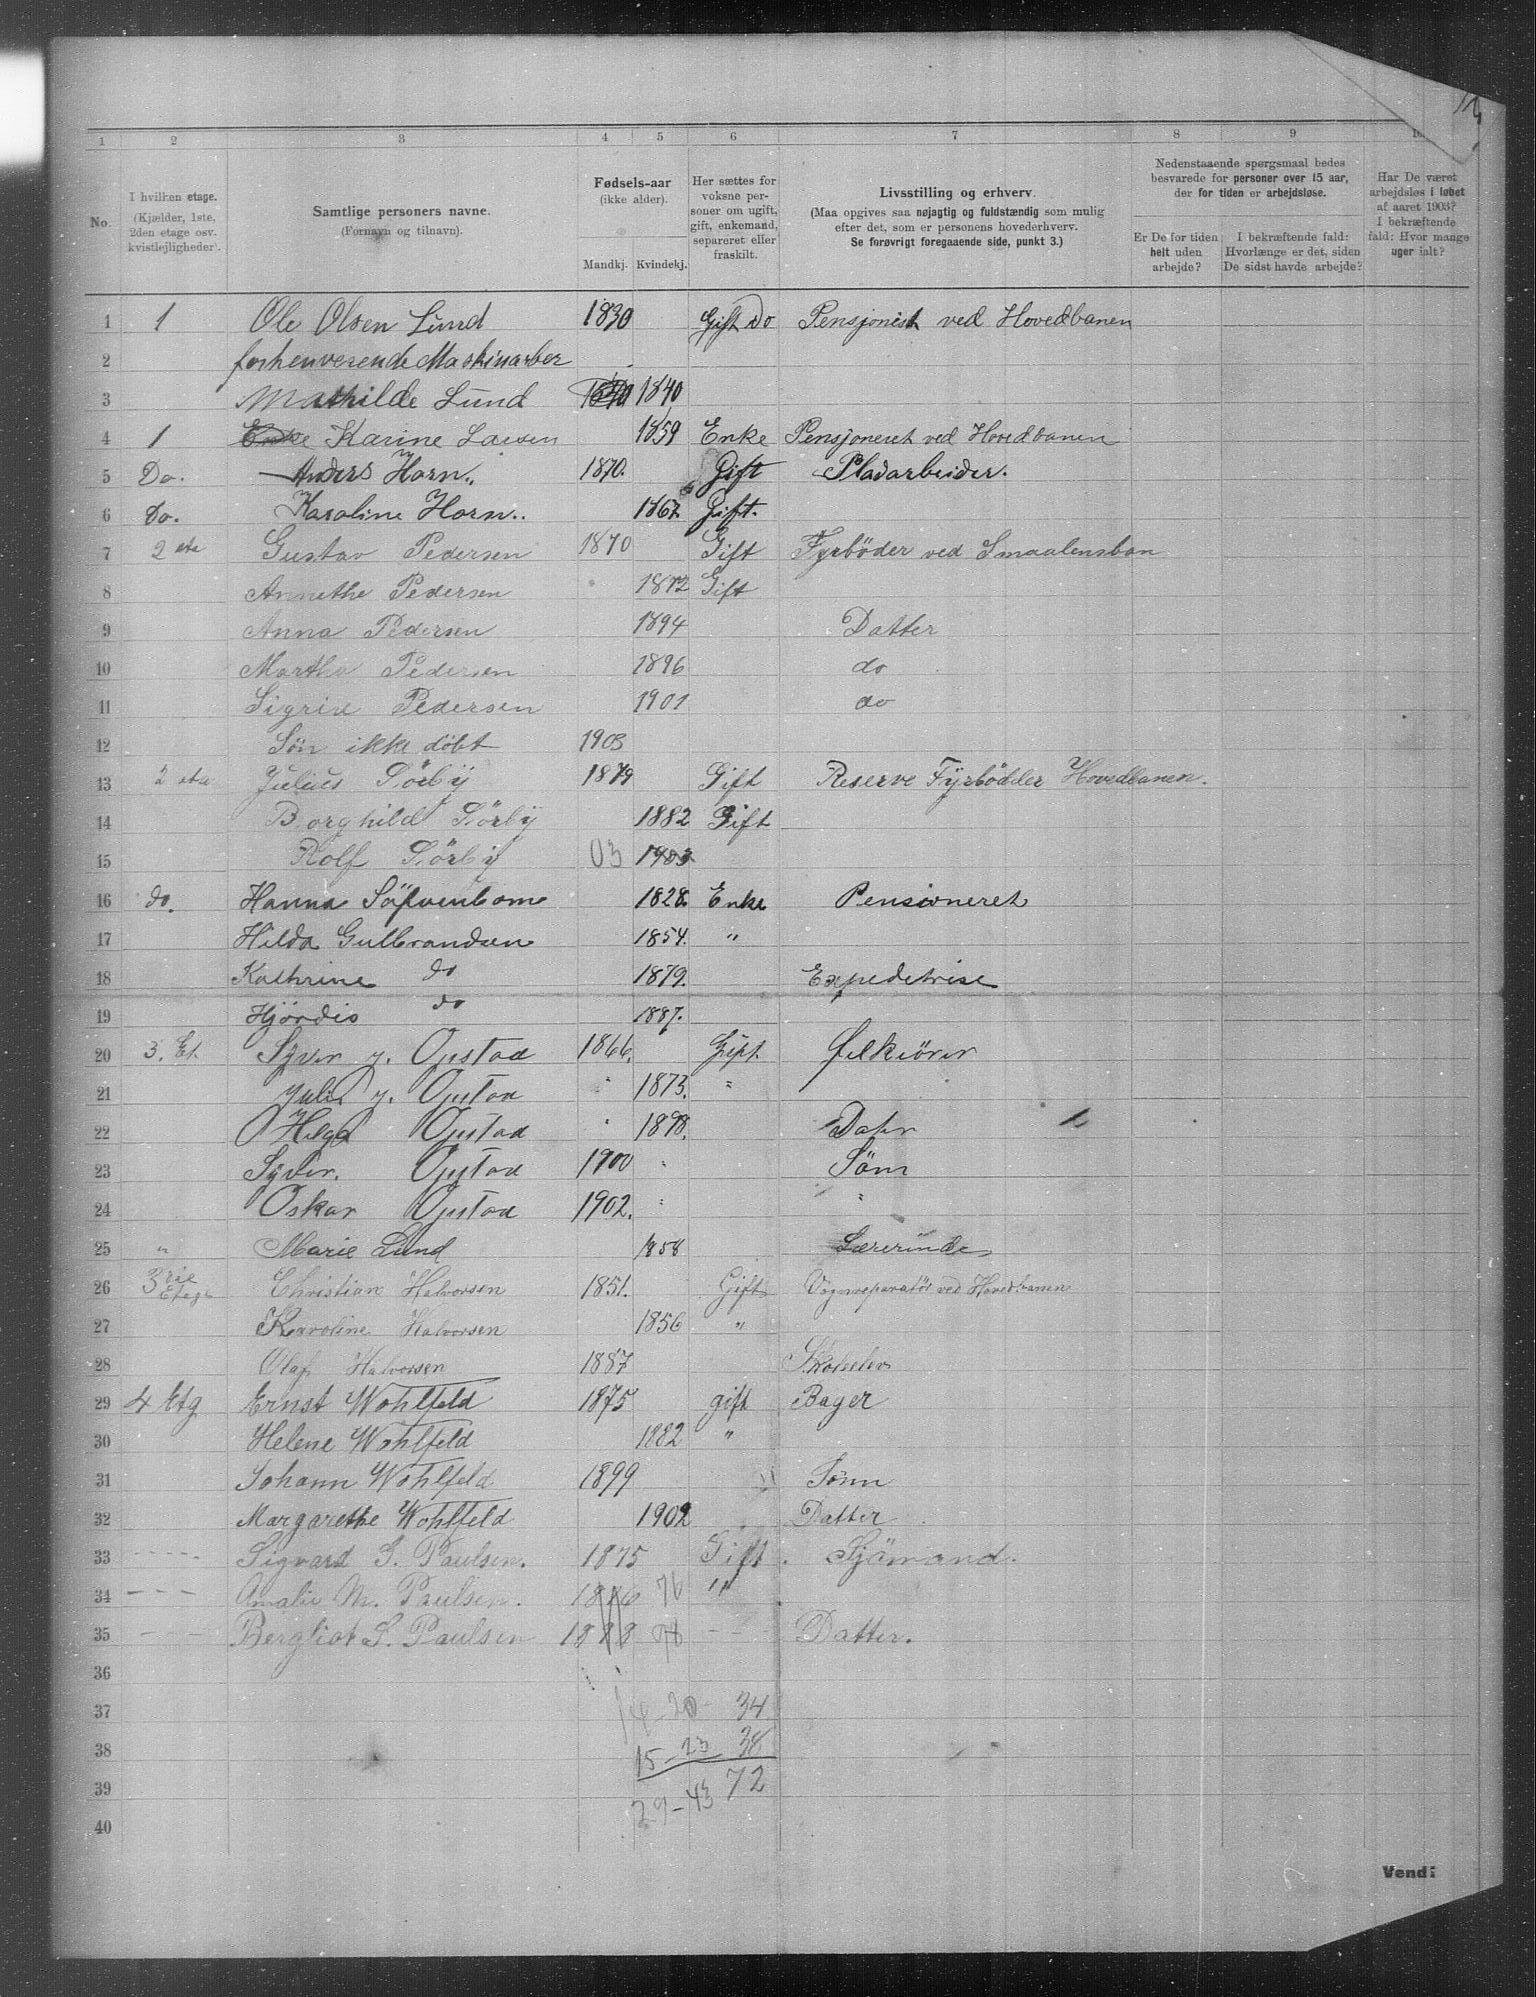 1 2 3 4 5 6 7 8 9
No.
I hvilken etage. (Kjælder, 1ste, 2den etage osv. kvistlejligheder).
Samtlige personers navne. (Fornavn og tilnavn).
Fødsels-aar (ikke alder).
Mandkj. Kvindekj.
Her sættes for voksne personer om ugift, gift, enkemand, separeret eller fraskilt.
Livsstilling og erhverv. (Maa opgives saa nøjagtig og fuldstændig som mulig efter det, som er personens hovederhverv. Se forøvrigt foregaaende side, punkt 3.)
Nedenstaaende spørgsmaal bedes besvarede for personer over 15 aar, der for tiden er arbejdsløse.
Er De for tiden helt uden arbejde?
I bekræftende fald: Hvorlænge er det, siden De sidst havde arbejde?
Har De været arbejdsløs i løbet af aaret 1903? I bekræftende fald: Hvor mange uger ialt?
1 1 Ole Olsen Lund 1830 Gift Do Pensjonist ved Hovedbanen
2 forhenverende Maskinarber
3 Mathilde Lund 1840
4 1 Karine Larsen 1859 Enke Pensjoneret ved Hovedbanen
5 Do. Anders Horn 1870. Gift Pladarbeider.
6 Do. Karoline Horn 1867 Gift.
7 2 eta Gustav Pedersen 1870 Gift Fyrböder ved Smaalensban
8 Annethe Pedersen 1872 Gift
9 Anna Pedersen 1894 Datter
10 Martha Pedersen 1896 do
11 Sigrid Pedersen 1901 do
12 Sön ikke döbt 1903
13 2 eta Julius Sörby 1879 Gift Reserve Fyrbödder Hovedbanen.
14 Borghild Sörby 1882 Gift
15 Rolf Sörby 03 1903
16 do. Hanna 1828 Enke Pensioneret
17 Hilda Gulbrandsen 1854. "
18 Kathrine do 1879. Expedetrise
19 Hjördis do 1887.
20 3. Et. Syver J. Opstad 1866. Gift Ølkiörer
21 Julie J. Opstad 1873. "
22 Helga Opstad 1898. Datr
23 Syver. Opstad 1900 Sönn
24 Oskar Opstad 1902. "
25 " Marie Lund 1858 Lærerinde
26 3die Etage Christian Halvorsen 1851. Gift Vognreparatör ved Hovedbanen
27 Karoline Halvorsen 1856 "
28 Olaf Halvorsen 1887 Skoleelev
29 4 Etg Ernst Wohlfeld 1875 gift Bager
30 Helene Wohlfeld 1882 "
31 Johann Wohlfeld 1899 Sönn
32 Margarethe Wohlfeld 1902 Datter
33 Sigvard G. Paulsen. 1875 Gift. Sjömand.
34 Amalie M. Paulsen. 1876 76 "
35 Bergliot S. Paulsen 1898 98 Datter.
36
37 14-20 34
38 15-23 38
39 29-43 72
40
Vend!